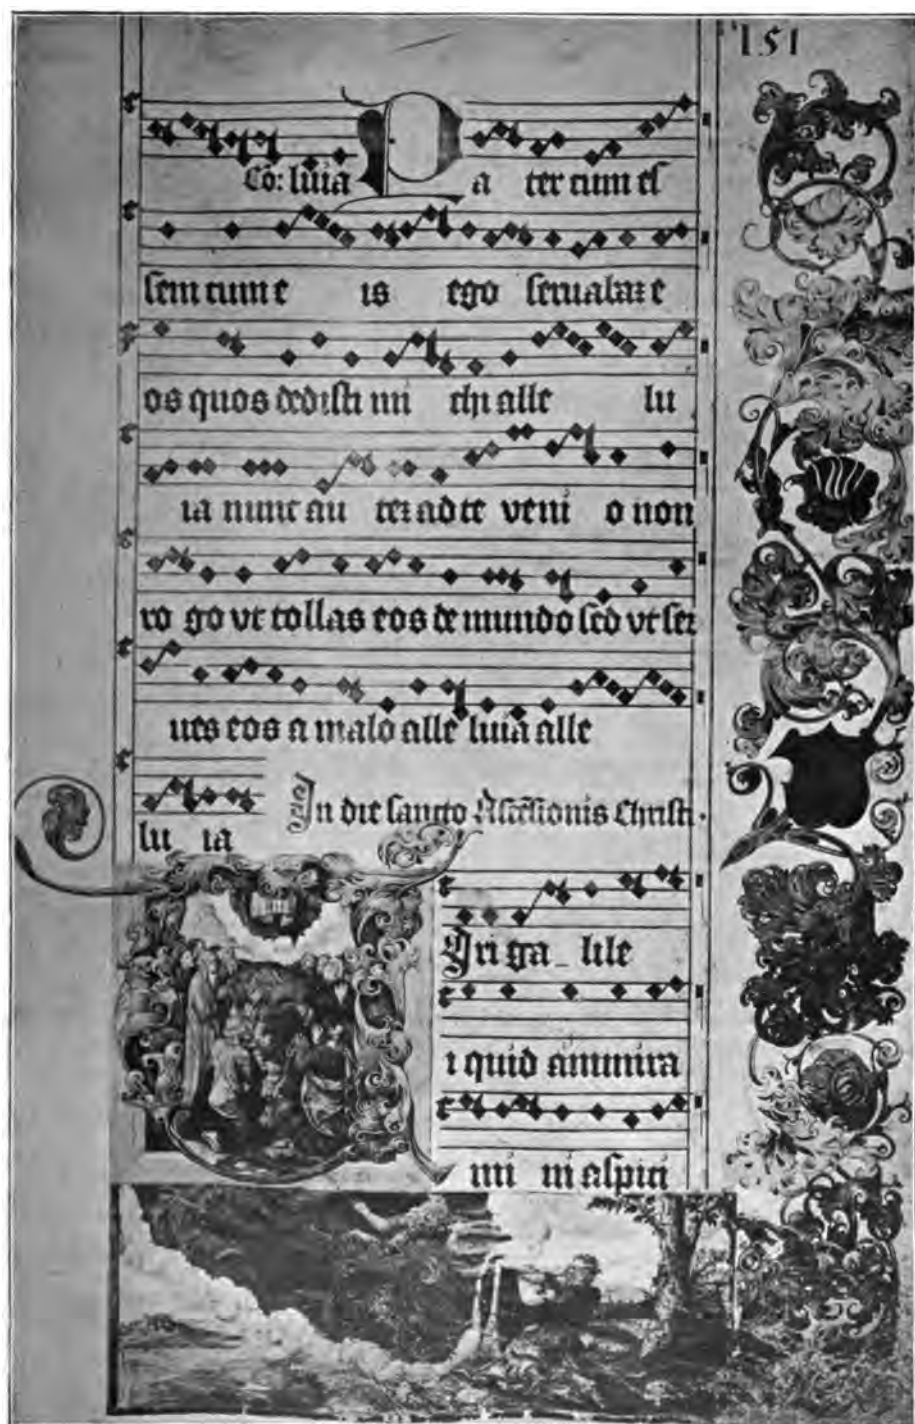 151
Cō: luia Pa ter cum es
sem cum e is ego seruabaz e
os quos dedisti mi chi alle lu
ia nunc au tez ad te veni o non
ro go vt tollas eos de mundo sed vt sez
ues eos a malo alle luia alle
lu ia In die sancto Ascēsionis Christi.
Uiri ga_ lile
i quid ammira
mi ni aspici